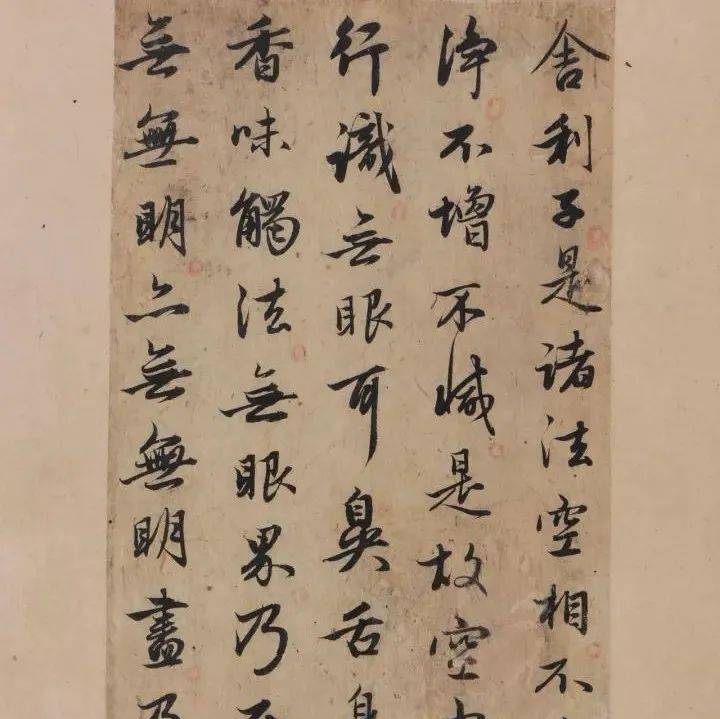 舍利子是諸法空相不
淨不增不減是故空
行識無眼耳鼻舌身
香味觸法無眼界乃
無無明亦無無明盡乃